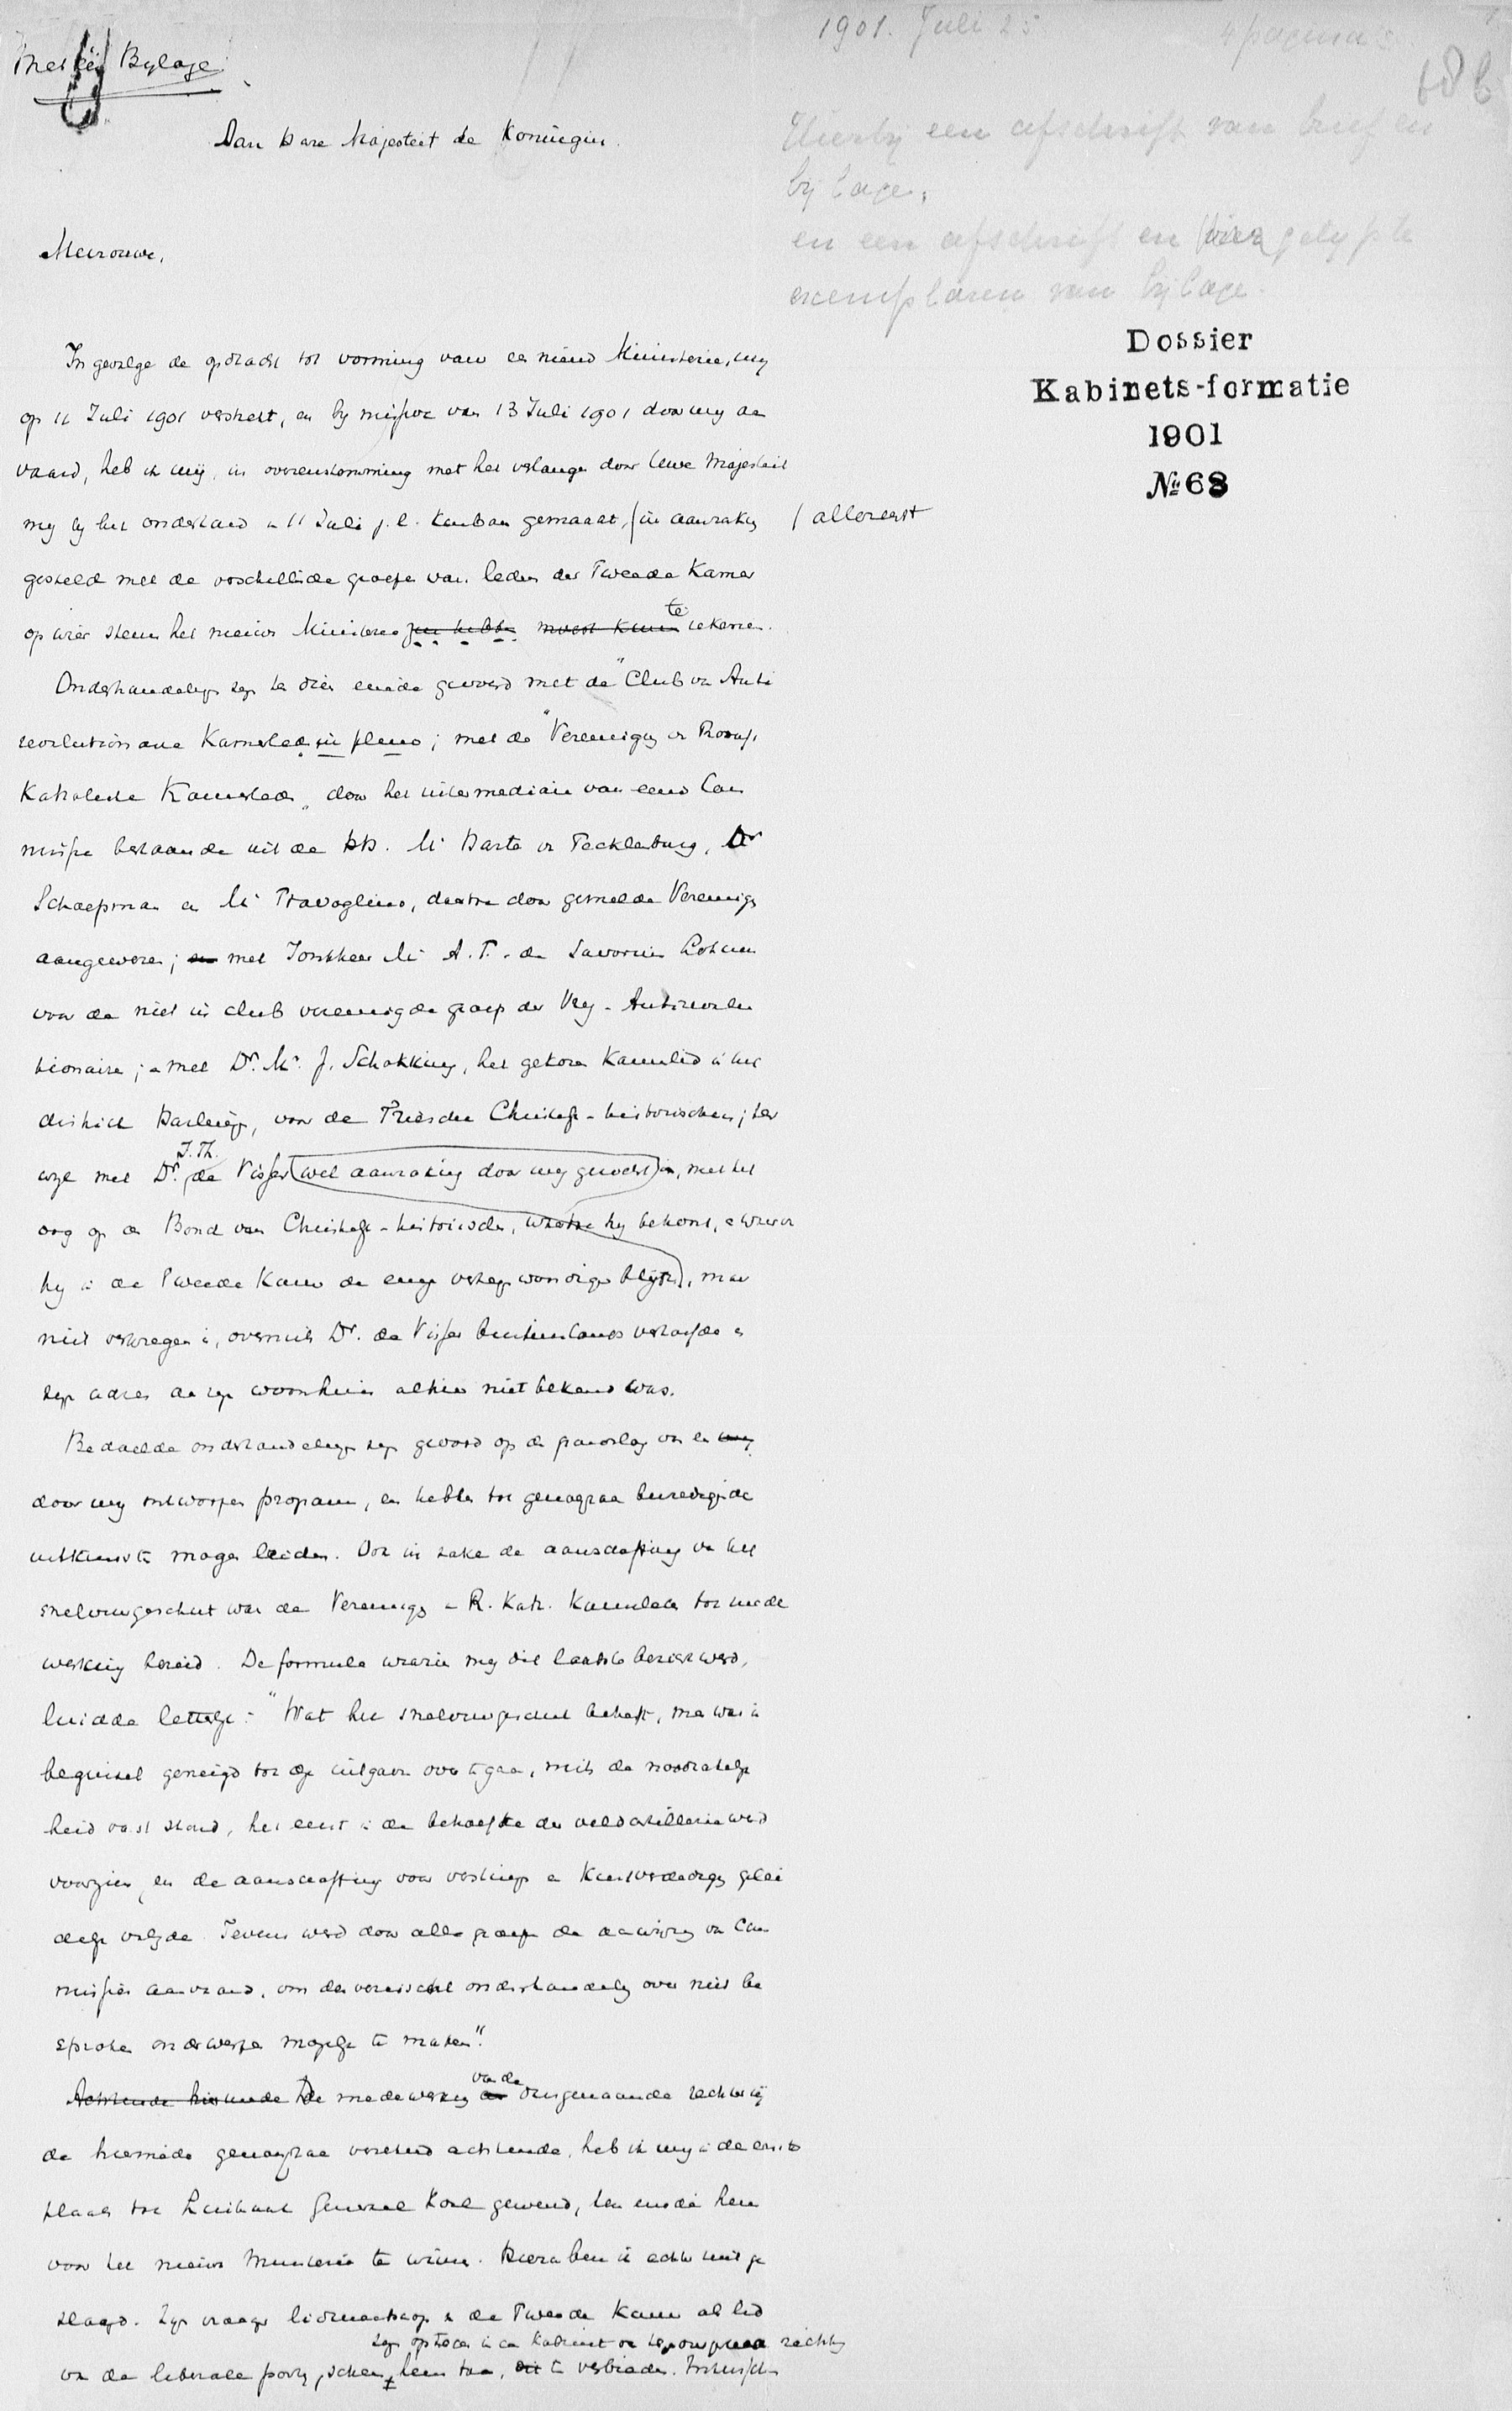 1901. Juli 25
4 pagina's
68 b
Met één Bylage.
Hierbij een afschrift van brief en
bijlage,
en een afschrift en vier getypte
exemplaren van bijlage.
Aan Hare Majesteit de Koningin.
Mevrouw,
Dossier
Kabinets-formatie
1901
№ 68
In gevolge de opdracht tot vorming van een nieuw Ministerie, my
op 11 Juli 1901 verstrekt, en by missive van 13 Juli 1901 door my aan
vaard, heb ik my, in overeenstemming met het verlangen door Uwe Majesteit
my by het onderhoud van 11 Juli j.l. kenbaar gemaakt, / in aanraking / allereerst
gesteld met de verschillende groepen van leden der Tweede Kamer
op wier steun het nieuwe Ministerie zou hebben moest kunnen te rekenen.
Onderhandelingen zyn te dien einde gevoerd met de "Club van Anti
revolutionaire Kamerleden in pleno; met de "Vereeniging van Roomsch
Katholieke Kamerleden" door het intermediair van eene Com
missie bestaande uit de HH. Mr Harte van Tecklenburg, Dr
Schaepman en Mr Travaglino, daartoe door gemelde Vereeniging
aangewezen; en met Jonkheer Mr A. F. de Savornin Lohman
voor de niet in club vereenigde groep der Vry-Antirevolu
tionairen; en met Dr. Mr. J. Schokking, het gekozen Kamerlid in het
district Harlingen, voor de Friesche Christelijk-historischen; ter
wyl met Dr. J. Th. de Visser (wel aanraking door my gezocht) is, met het
oog op den Bond van Christelijk-historischen, waartoe hy behoort, en waarvan
hy in de Tweede Kamer de eenige vertegenwoordiger blykt, maar
niet verkregen is, overmits Dr. de Visser buitenslands vertoefde en
zyn adres aan zyn woonhuis alhier niet bekend was.
Bedoelde onderhandelingen zyn gevoerd op den grondslag van een
door my ontworpen program, en hebben tot genoegzaam bevredigende
uitkomsten mogen leiden. Ook in zake de aanschaffing van het
snelvuurgeschut was de Vereeniging van R. Kath. Kamerleden tot mede
werking bereid. De formule waarin my dit laatste bericht werd,
luidde letterlyk: "Wat het snelvuurgeschut betreft, men was in
beginsel geneigd tot die uitgave over te gaan, mits de noodzakelyk
heid vast stond, het eerst in de behoefte der veldartillerie werd
voorzien, en de aanschaffing voor vestings en kustverdediging gelei
delyk volgde. Tevens werd door alle groepen de aanwyzing van Com
missies aanvaard, om de vereischte onderhandeling over niet be
sproken onderwerpen mogelyk te maken".
Achtende hiermede De medewerking van de ondergenoemde rechterzy
de hiermede genoegzaam verzekerd achtende, heb ik my in de eerste
plaats tot Luitenant Generaal Kool gewend, ten einde hem
voor het nieuwe Ministerie te winnen. Hierin ben ik echter niet ge
slaagd. Zyn vroeger lidmaatschap van de Tweede Kamer als lid
zyn optreden in een Kabinet van tegenovergestelde richting
van de liberale party, scheen hem toe, dit te verbieden. Intusschen